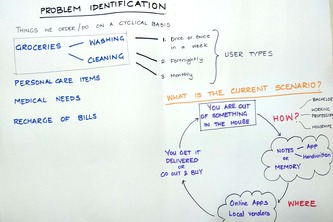 PROBLEM IDENTIFICATION
THINGS WE ORDER/DO ON A CYCLICAL BASIS
GROCERIES
WASHING
CLEANING
1. Once or twice
in a week
2. Fortnightly
3. Monthly
USER TYPES
PERSONAL CARE ITEMS
MEDICAL NEEDS
RECHARGE OF BILLS
WHAT IS THE CURRENT SCENARIO?
YOU ARE OUT
OF SOMETHING
IN THE HOUSE
HOW?
BACHELOR
WORKING
NOTES
App
Handwritten
OR
MEMORY
WHERE
Online Apps
Local vendors
YOU GET IT
DELIVERED
OR
GO OUT & BUY